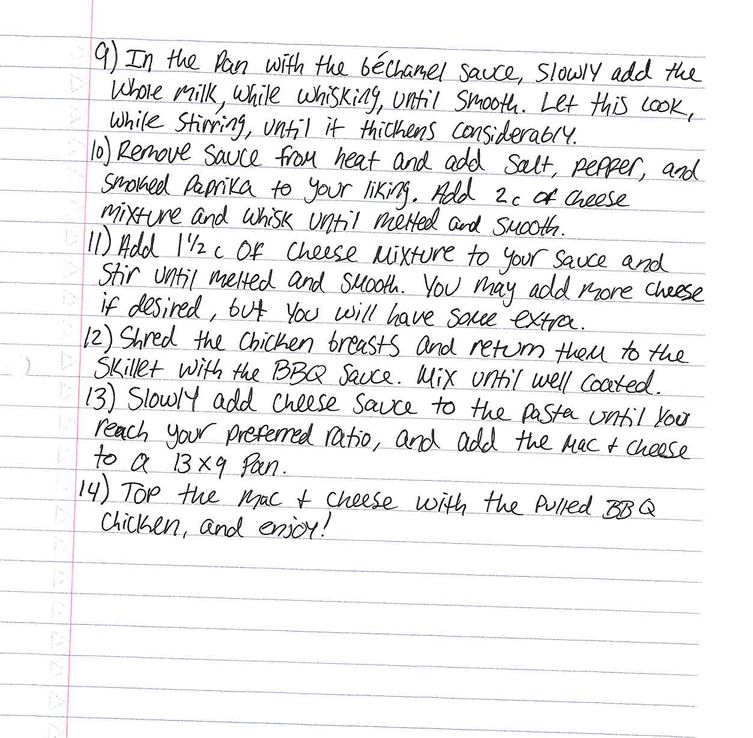 9) In the pan with the béchamel sauce, slowly add the
whole milk, while whisking, until smooth. Let this cook,
while stirring, until it thickens considerably.
10) Remove sauce from heat and add salt, pepper, and
smoked paprika to your liking. Add 2c of cheese
mixture and whisk until melted and smooth.
11) Add 1 1/2 c of cheese mixture to your sauce and
stir until melted and smooth. You may add more cheese
if desired, but you will have some extra.
12) Shred the chicken breasts and return them to the
skillet with the BBQ sauce. Mix until well coated.
13) Slowly add cheese sauce to the pasta until you
reach your preferred ratio, and add the mac + cheese
to a 13x9 pan.
14) Top the mac + cheese with the pulled BBQ
chicken, and enjoy!